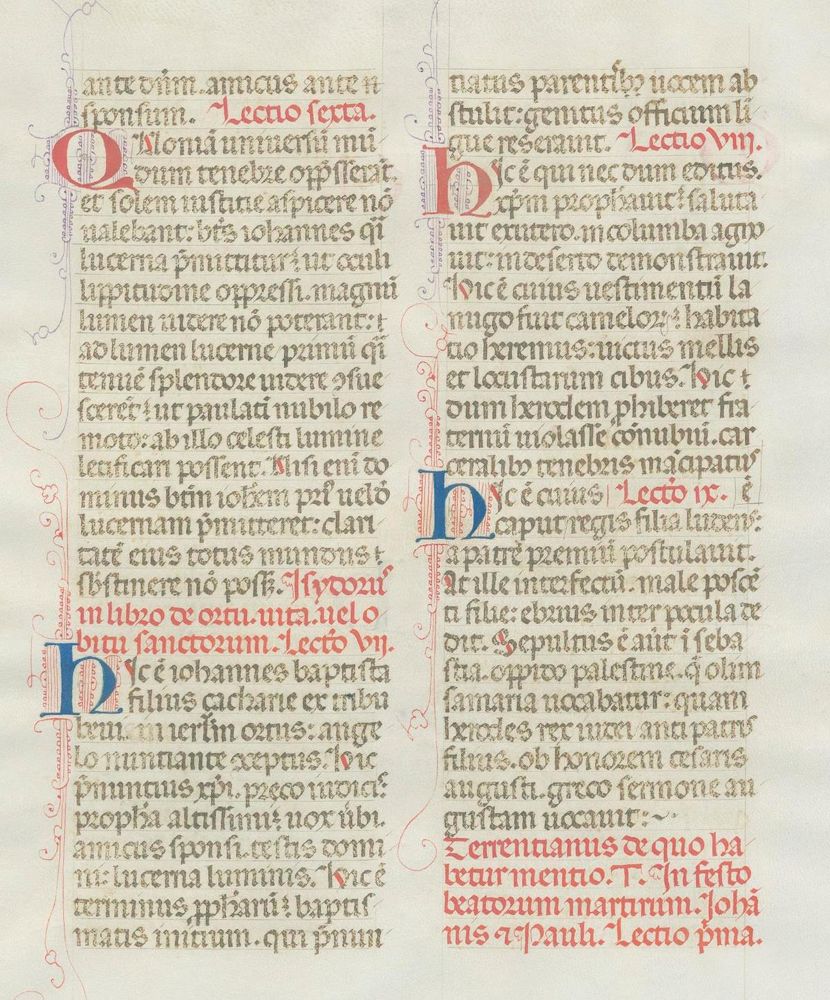 ante dn̄m. amicus ante n
sponsum. Lectio sexta.
Quoniā uniuersū mū
dum tenebre opp̄sserāt.
et solem iustitie aspicere nō
ualebant: bt̄s iohannes qͥ
lucerna p̄mittitur: ut oculi
lippitudine oppressi. magnū
lumen uidere nō poterant: ⁊
ad lumen lucerne primū qͥ
tenuē splendore uidere ꝯsue
scerēt: ut paulatī nubilo re
moto: ab illo celesti lumine
letificari possent. Nisi enī do
minus btm̄ ioh̄em prͥꝰ uelō
lucernam p̄mitteret: clari
tatē eius totus mundus ⁊
sb̄stinere nō posꝫ. Isydorus
in libro de ortu. uita. uel o
bitu sanctorum. Lectō vij.
hic ē iohannes baptista
filius çacharie ex tribu
leui. in ierl̄m ortus: ange
lo nuntiante ꝯceptus. hic
p̄nuntius xp̄i. preco iudicis:
proph̄a altissimi: uox ūbi.
amicus sponsi. testis domi
ni: lucerna luminis. hic ē
terminus ꝓph̄arū: baptis
matis initium. qui p̄nun
tiatus parentibꝫ uocem ab
stulit: genitus officium li
gue reserauit. Lectio viij.
hic ē qui nec dum editus.
xp̄m prophauit: saluta
uit ex utero. in columba agno
uit: in deserto demonstrauit.
hic ē cuius uestimentū la
nugo fuit cameloꝝ: habita
tio heremus: uictus mellis
et locustarum cibus. hic ⁊
dum herodem ꝓhiberet fra
terni uiolasse conubiū. car
ceralibꝫ tenebris mācipatꝰ
hic ē cuius Lectō ix. ē
caput regis filia ludens:
a patrē premiū postulauit.
At ille interfectū. male poscē
ti filie: ebrius inter pocula de
dit. Sepultus ē aūt ī seba
stia. oppido palestine. q̄ olim
samaria uocabatur: quam
herodes rex iudei antipatris
filius. ob honorem cesaris
augusti. greco sermone au
gustam uocauit:
Terrentianus de quo ha
betur mentio. T. In festo
beatorum martirum. Johā
nis ⁊ Pauli. Lectio p̄ma.